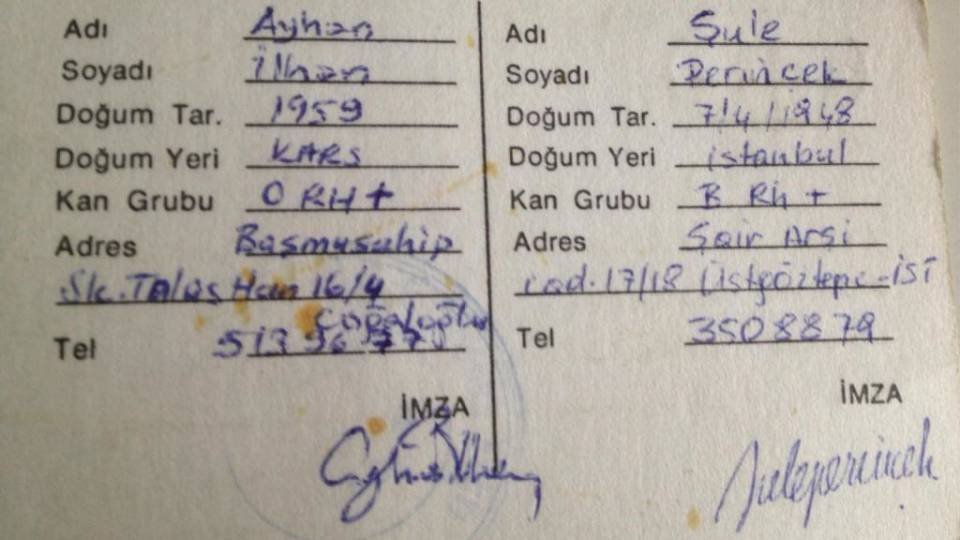 Adı Ayhan
Soyadı İlhan
Doğum Tar. 1959
Doğum Yeri KARS
Kan Grubu O RH +
Adres Başmusahip
Sk. Talas Han 16/4
Cağaloğlu
Tel 513
İMZA
Adı Şule
Soyadı Perinçek
Doğum Tar. 7/4/1948
Doğum Yeri istanbul
Kan Grubu B Rh +
Adres Şair Arşi
cad. 17/18 Üstgöztepe-İST
Tel 3508879
İMZA
Şule Perinçek